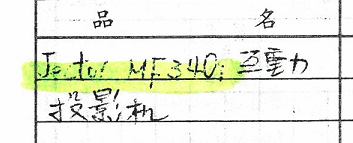 品 名
Jector MF340i 互動力
投影机